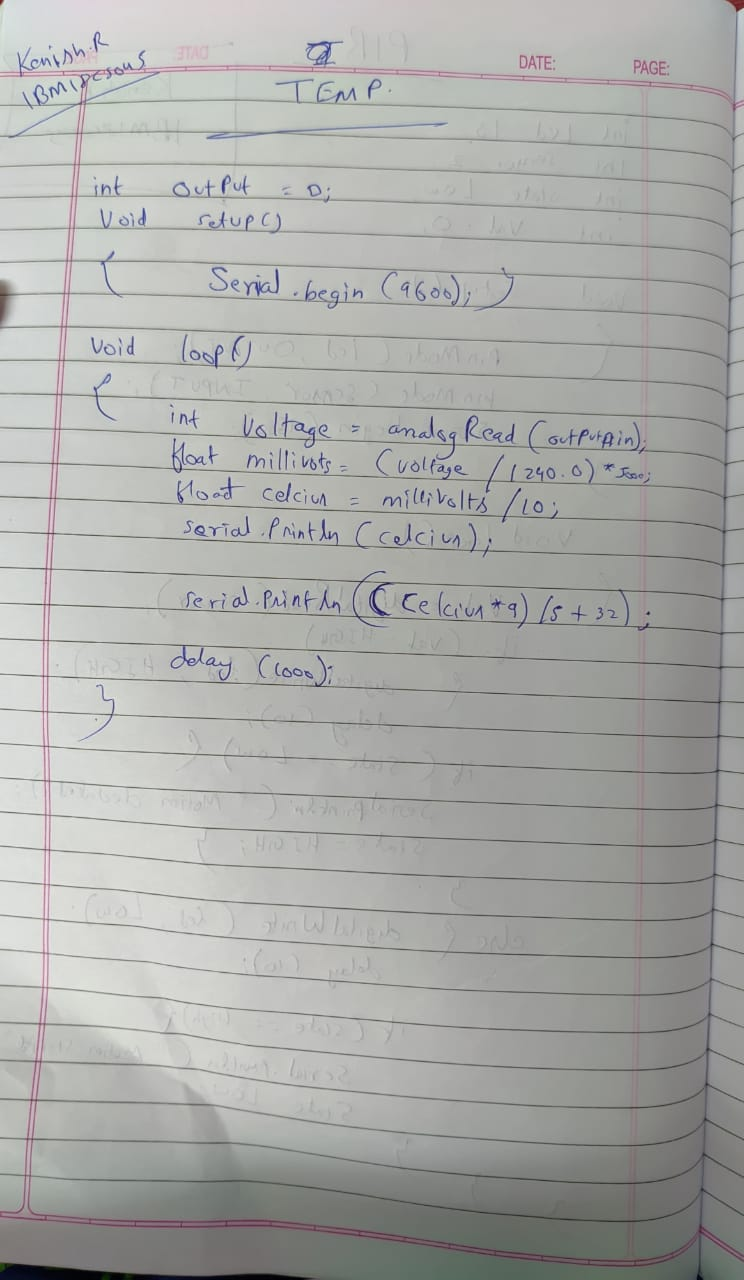 Kenish.R
DATE:
PAGE:
TEMP.
int output = 0;
Void setup()
{ Serial.begin (9600); }
Void loop()
{
int Voltage = analogRead (outputpin);
float millivots = (voltage / 1240.0) * 5000;
float celcius = millivolts /10;
serial.Println (celcius);
serial.Println ((celcius*9) /5 + 32);
delay (1000);
}